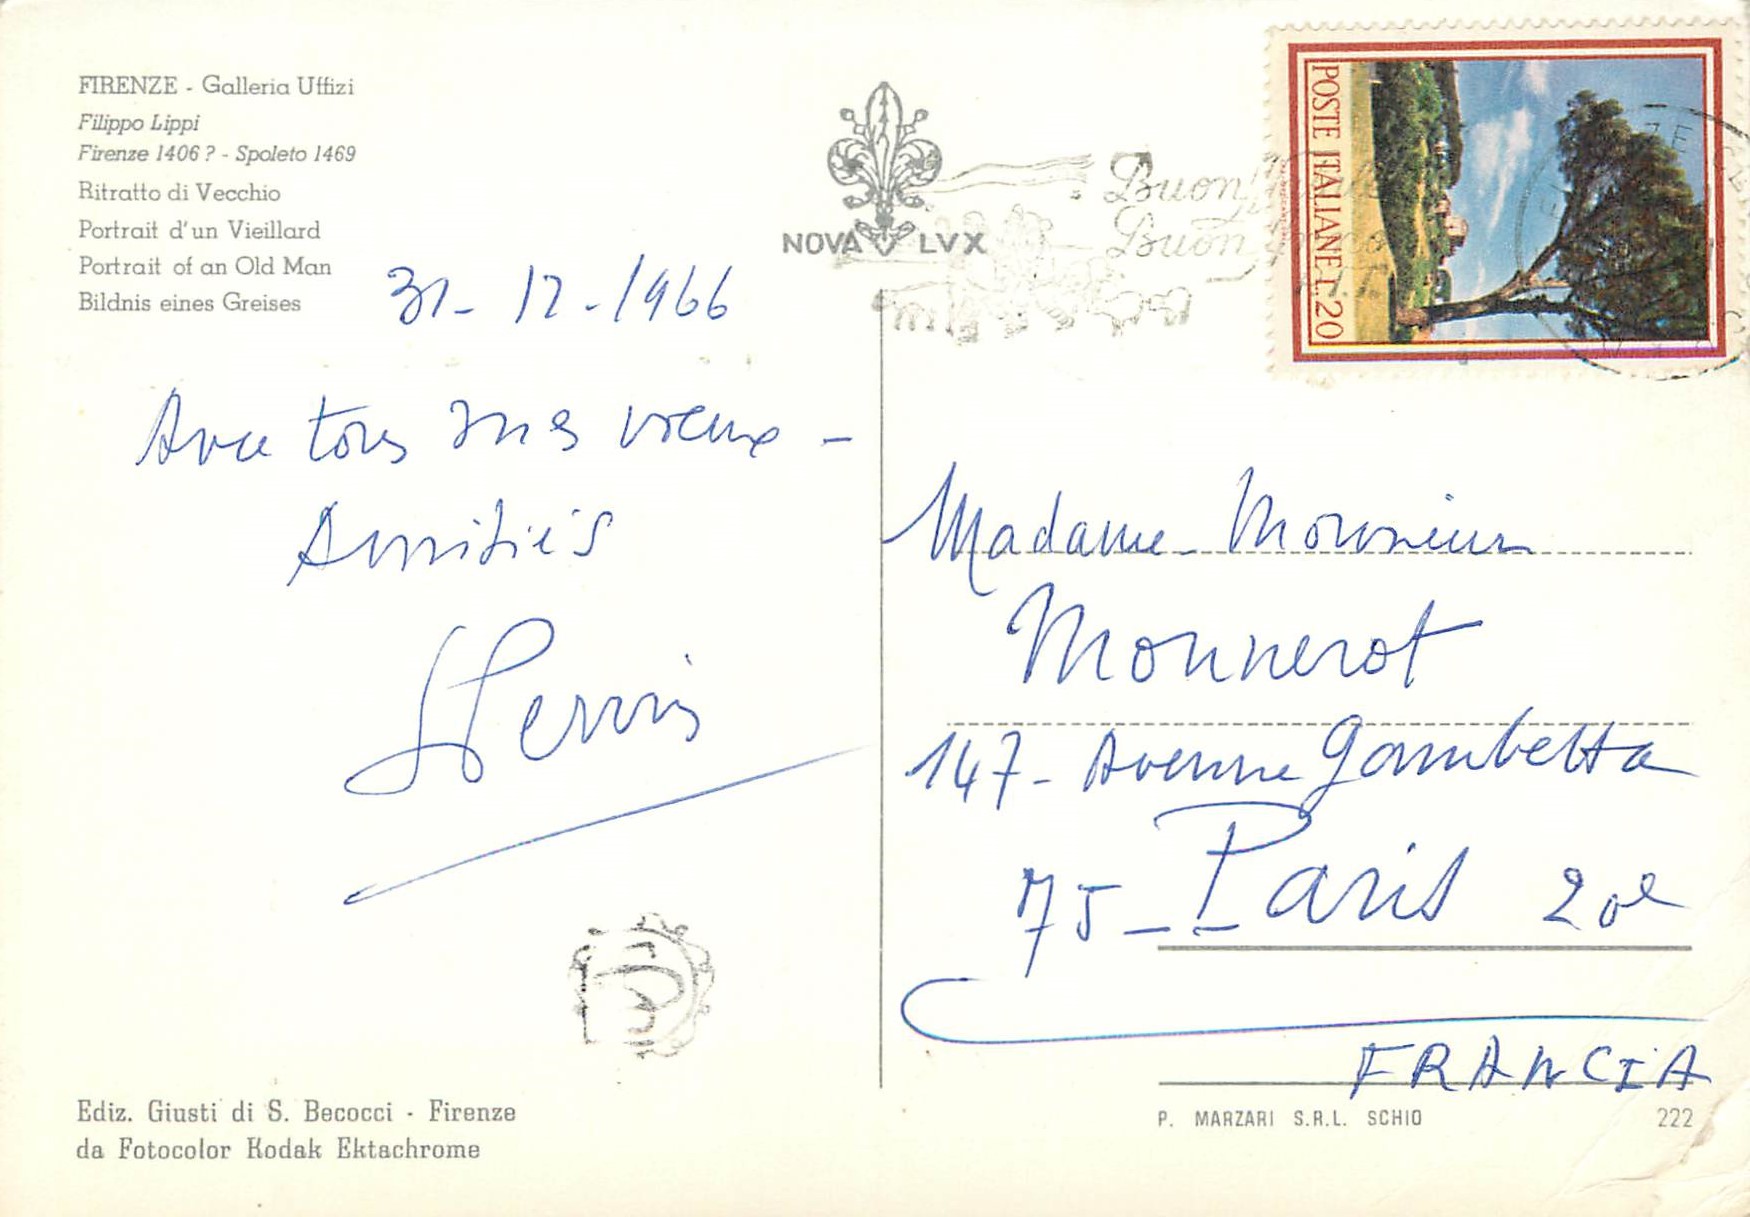 FIRENZE - Galleria Uffizi
Filippo Lippi
Firenze 1406 ? - Spoleto 1469
Ritratto di Vecchio
Portrait d'un Vieillard
Portrait of an Old Man
Bildnis eines Greises
31-12-1966
Avec tous mes vœux -
Amitiés
NOVA LVX
Buon
Buon
POSTE ITALIANE L. 20
Madame - Monsieur
Monnerot
147 - Avenue Gambetta
75 - Paris 20e
FRANCIA
Ediz. Giusti di S. Becocci - Firenze
da Fotocolor Kodak Ektachrome
P. MARZARI S.R.L. SCHIO
222